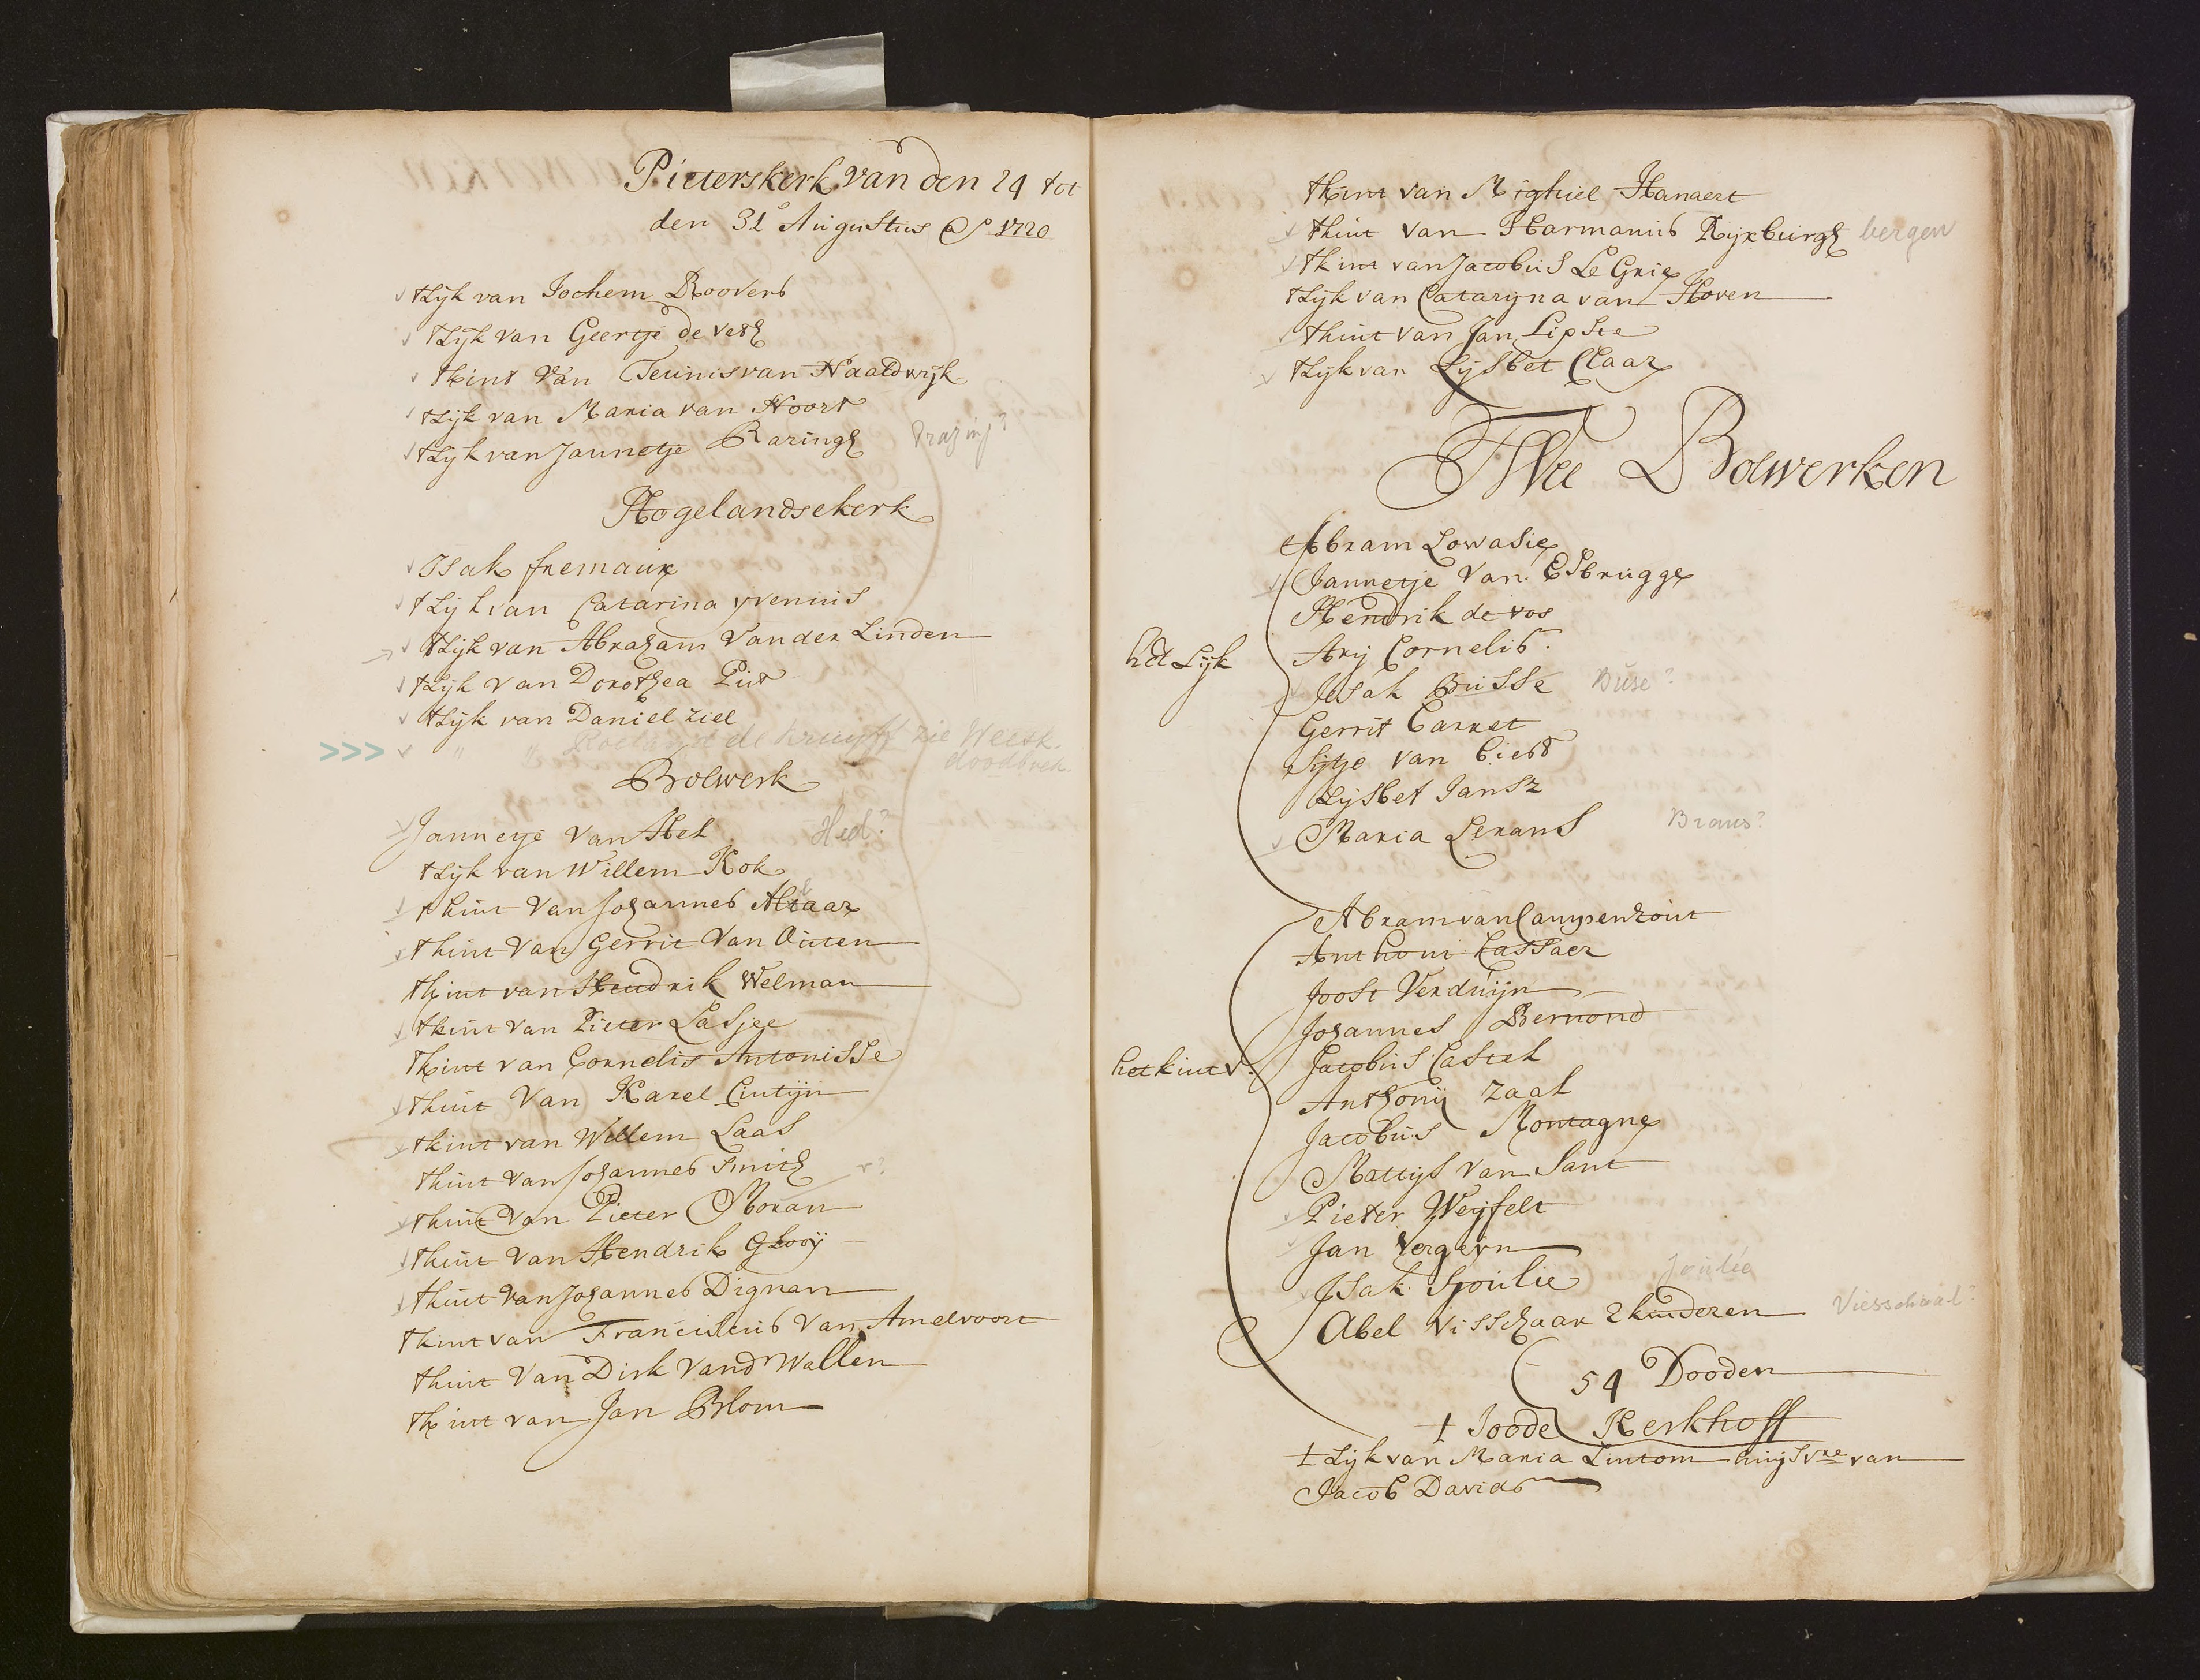 Pieterskerk van den 24 tot
den 31° Augustus A° 1720
tLyk van Jochem Roovers
tLyk van Geertje de Vesh
tkint van Teunis van Naaldwyk
tLyk van Maria van Noort
tLyk van Jannetje Baringh
Hogelandsekerk
Isak fremaux
tLyk van Catarina yvenius
tLyk van Abraham Vander Linden
tLyk van Dorothea Put
tLyk van Daniel Ziel
>>> " " Roeland de Kruyff zie Weesk.
doodboek
Bolwerk
Jannetje van Hel Hed?
tLyk van Willem Kok
tkint van Johannes Altaar
tkint van Gerrit van Outen
tkint van Hendrik Welman
tkint van Pieter Lasjee
tkint van Cornelis Antonisse
tkint van Karel Cintijn
tkint van Willem Laas
tkint van Johannes Smith r?
tkint van Pieter Moran
tkint van Hendrik Glooy
tkint van Johannes Dignan
tkint van Franciscus van Amelvoort
tkint van Dirk vand Wallen
tkint van Jan Blom
tkint van Mighiel Hanaert
tkint van Harmanus Rijxburgh bergen
tkint van Jacobus Le Grie
tLyk van Cataryna van Hoven
tkint van Jan Lipste
tLyk van Lysbet Claaz
TWee Bolwerken
Abram Lowasie
Jannetje van Esbrugge
Hendrik de vos
het Lyk Ary Cornelis.
Isak Busse Buse?
Gerrit Carret
Sytje van Biest
Lysbet Jansz
Maria Lerans Braus?
Abram van Campenhout
Anthoni Cassaer
Joost Verduijn
Johannes Bernond
het kint v: Jacobus Castel
Anthony Zaal
Jacobus Montagne
Mattys van Sant
Pieter Weyfelt
Jan Vergeyn
Isak Sjoulie Joulée
Abel Visschaar 2 kinderen Viesschaal?
54 Dooden
† Joode Kerkhoff
† Lyk van Maria Lintom huysvre van
Jacob Davids